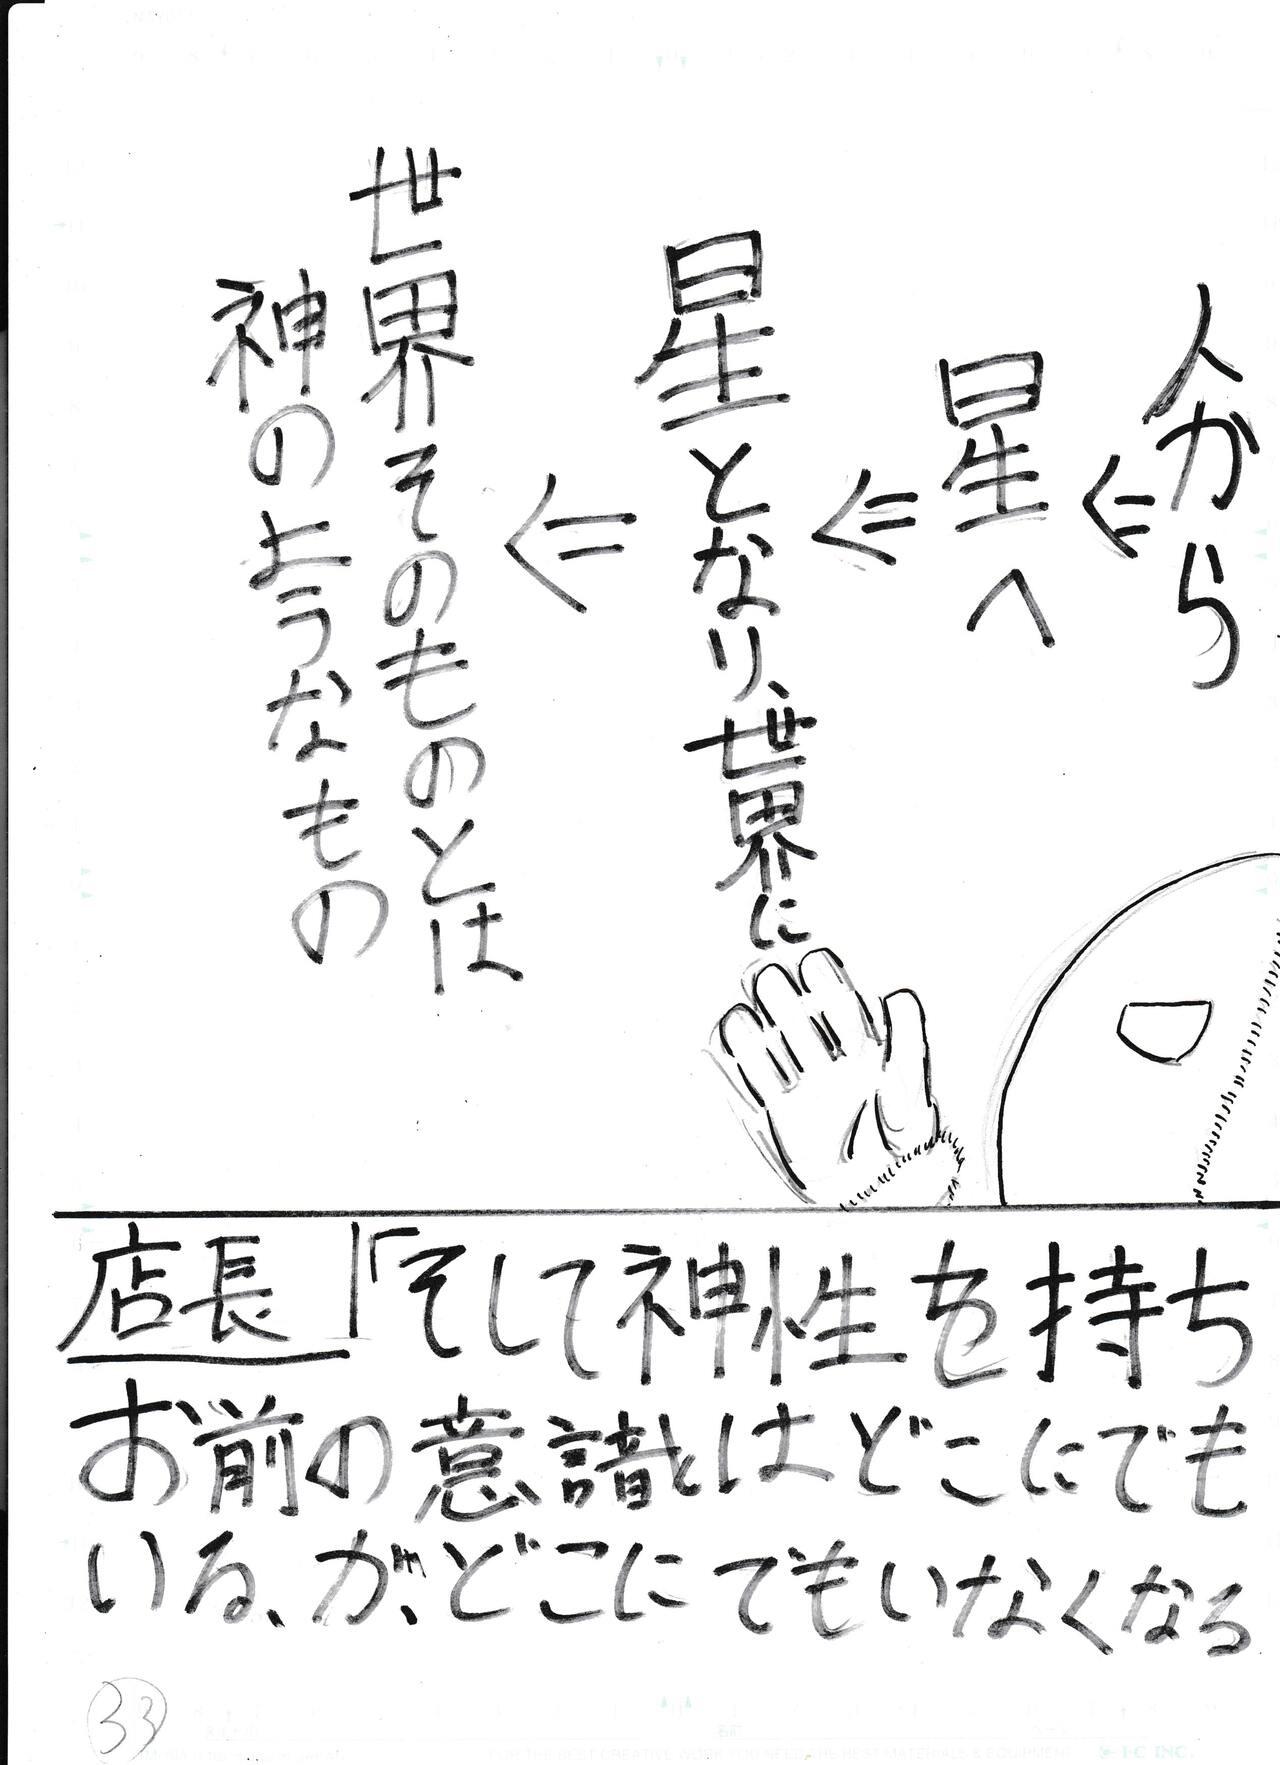 人から
⇐
星へ
⇐
星となり、世界に
⇐
世界そのものとは
神のようなもの
店長「そして神性を持ち
お前の意識はどこにでも
いる、が、どこにでもいなくなる
33
FOR THE BEST CREATIVE WORK YOU NEED THE BEST MATERIALS & EQUIPMENT
I·C INC.